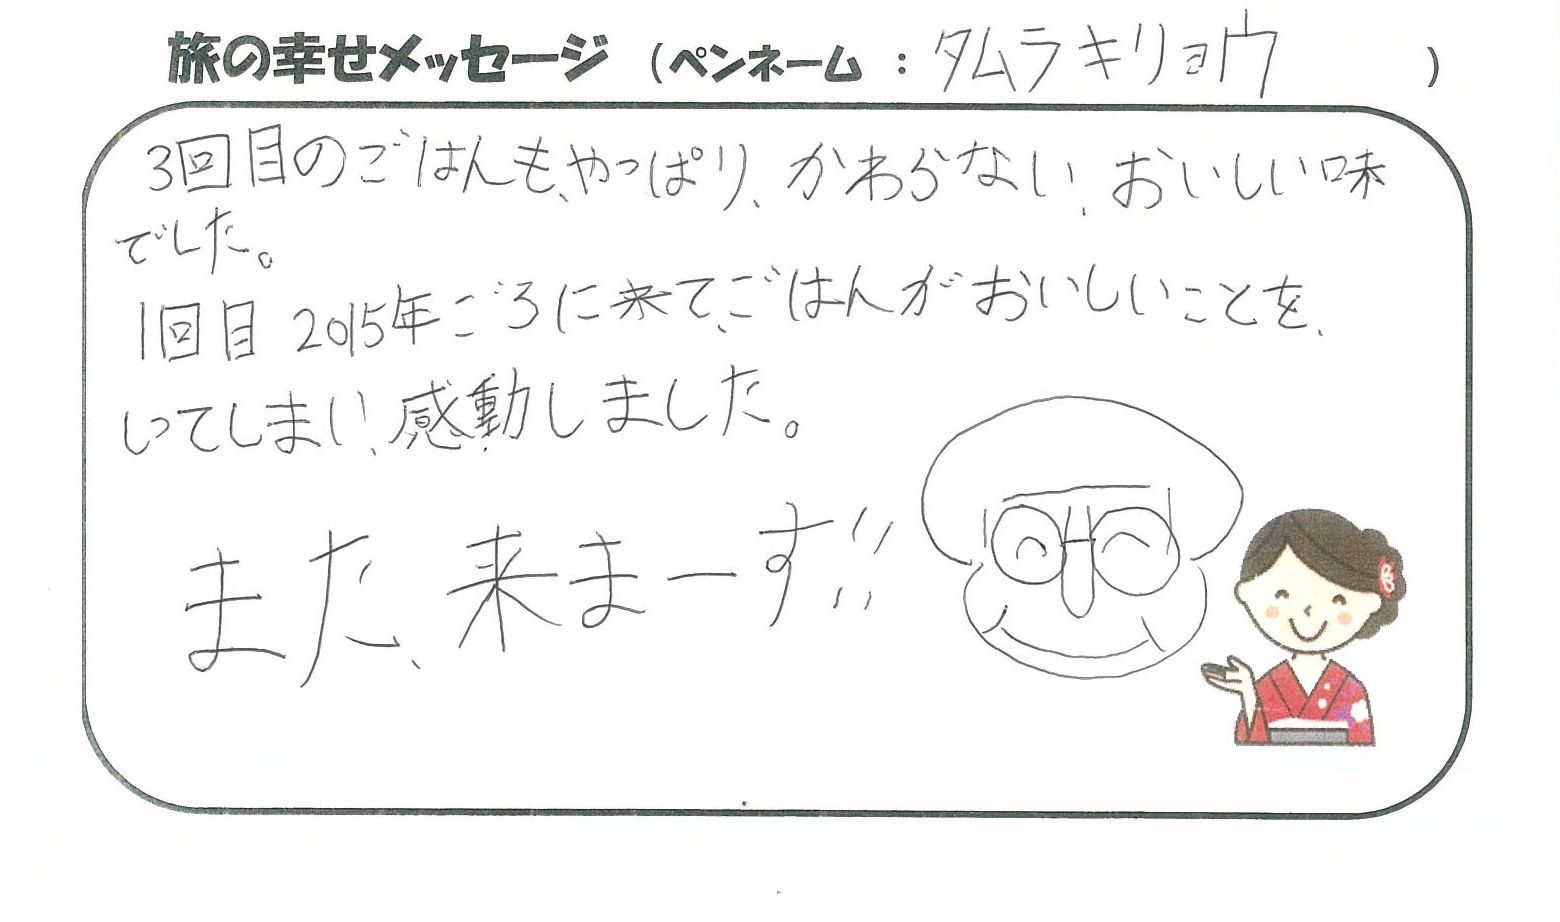 旅の幸せメッセージ (ペンネーム : タムラキリョウ )
3回目のごはんも、やっぱり、かわらない、おいしい味
でした。
1回目 2015年ごろに来て、ごはんがおいしいことを、
いてしまい、感動しました。
また、来まーす!!